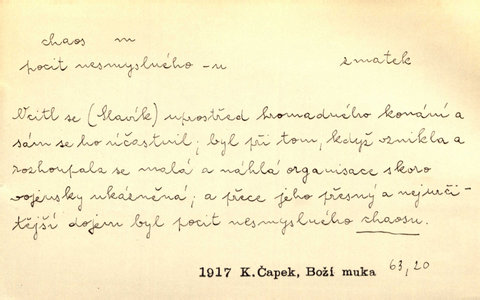 chaos m
pocit nesmyslného -u zmatek
Ocitl se (Slavík) uprostřed hromadného konání a
sám se ho účastnil; byl při tom, když vznikla a
rozhoupala se malá a náhlá organisace skoro
vojensky ukázněná; a přece jeho přesný a nejurči-
tější dojem byl pocit nesmyslného chaosu.
1917 K.Čapek, Boží muka 63,20